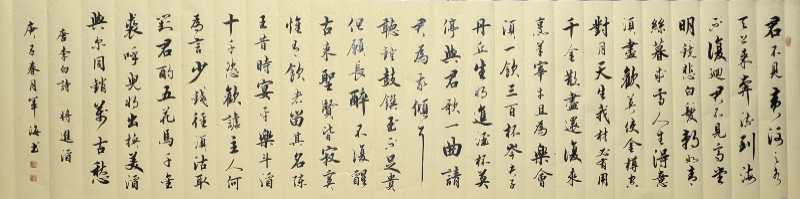 君不見黃河之水
天上來奔流到海
不復迴君不見高堂
明鏡悲白髮朝如青
絲暮成雪人生得意
須盡歡莫使金樽空
對月天生我材必有用
千金散盡還復來
烹羊宰牛且為樂會
須一飲三百杯岑夫子
丹丘生將進酒杯莫
停與君歌一曲請
君為我傾耳
聽鐘鼓饌玉不足貴
但願長醉不復醒
古來聖賢皆寂寞
惟有飲者留其名陳
王昔時宴平樂斗酒
十千恣歡謔主人何
為言少錢徑須沽取
對君酌五花馬千金
裘呼兒將出換美酒
與爾同銷萬古愁
唐李白詩 將進酒
庚子春月軍海書